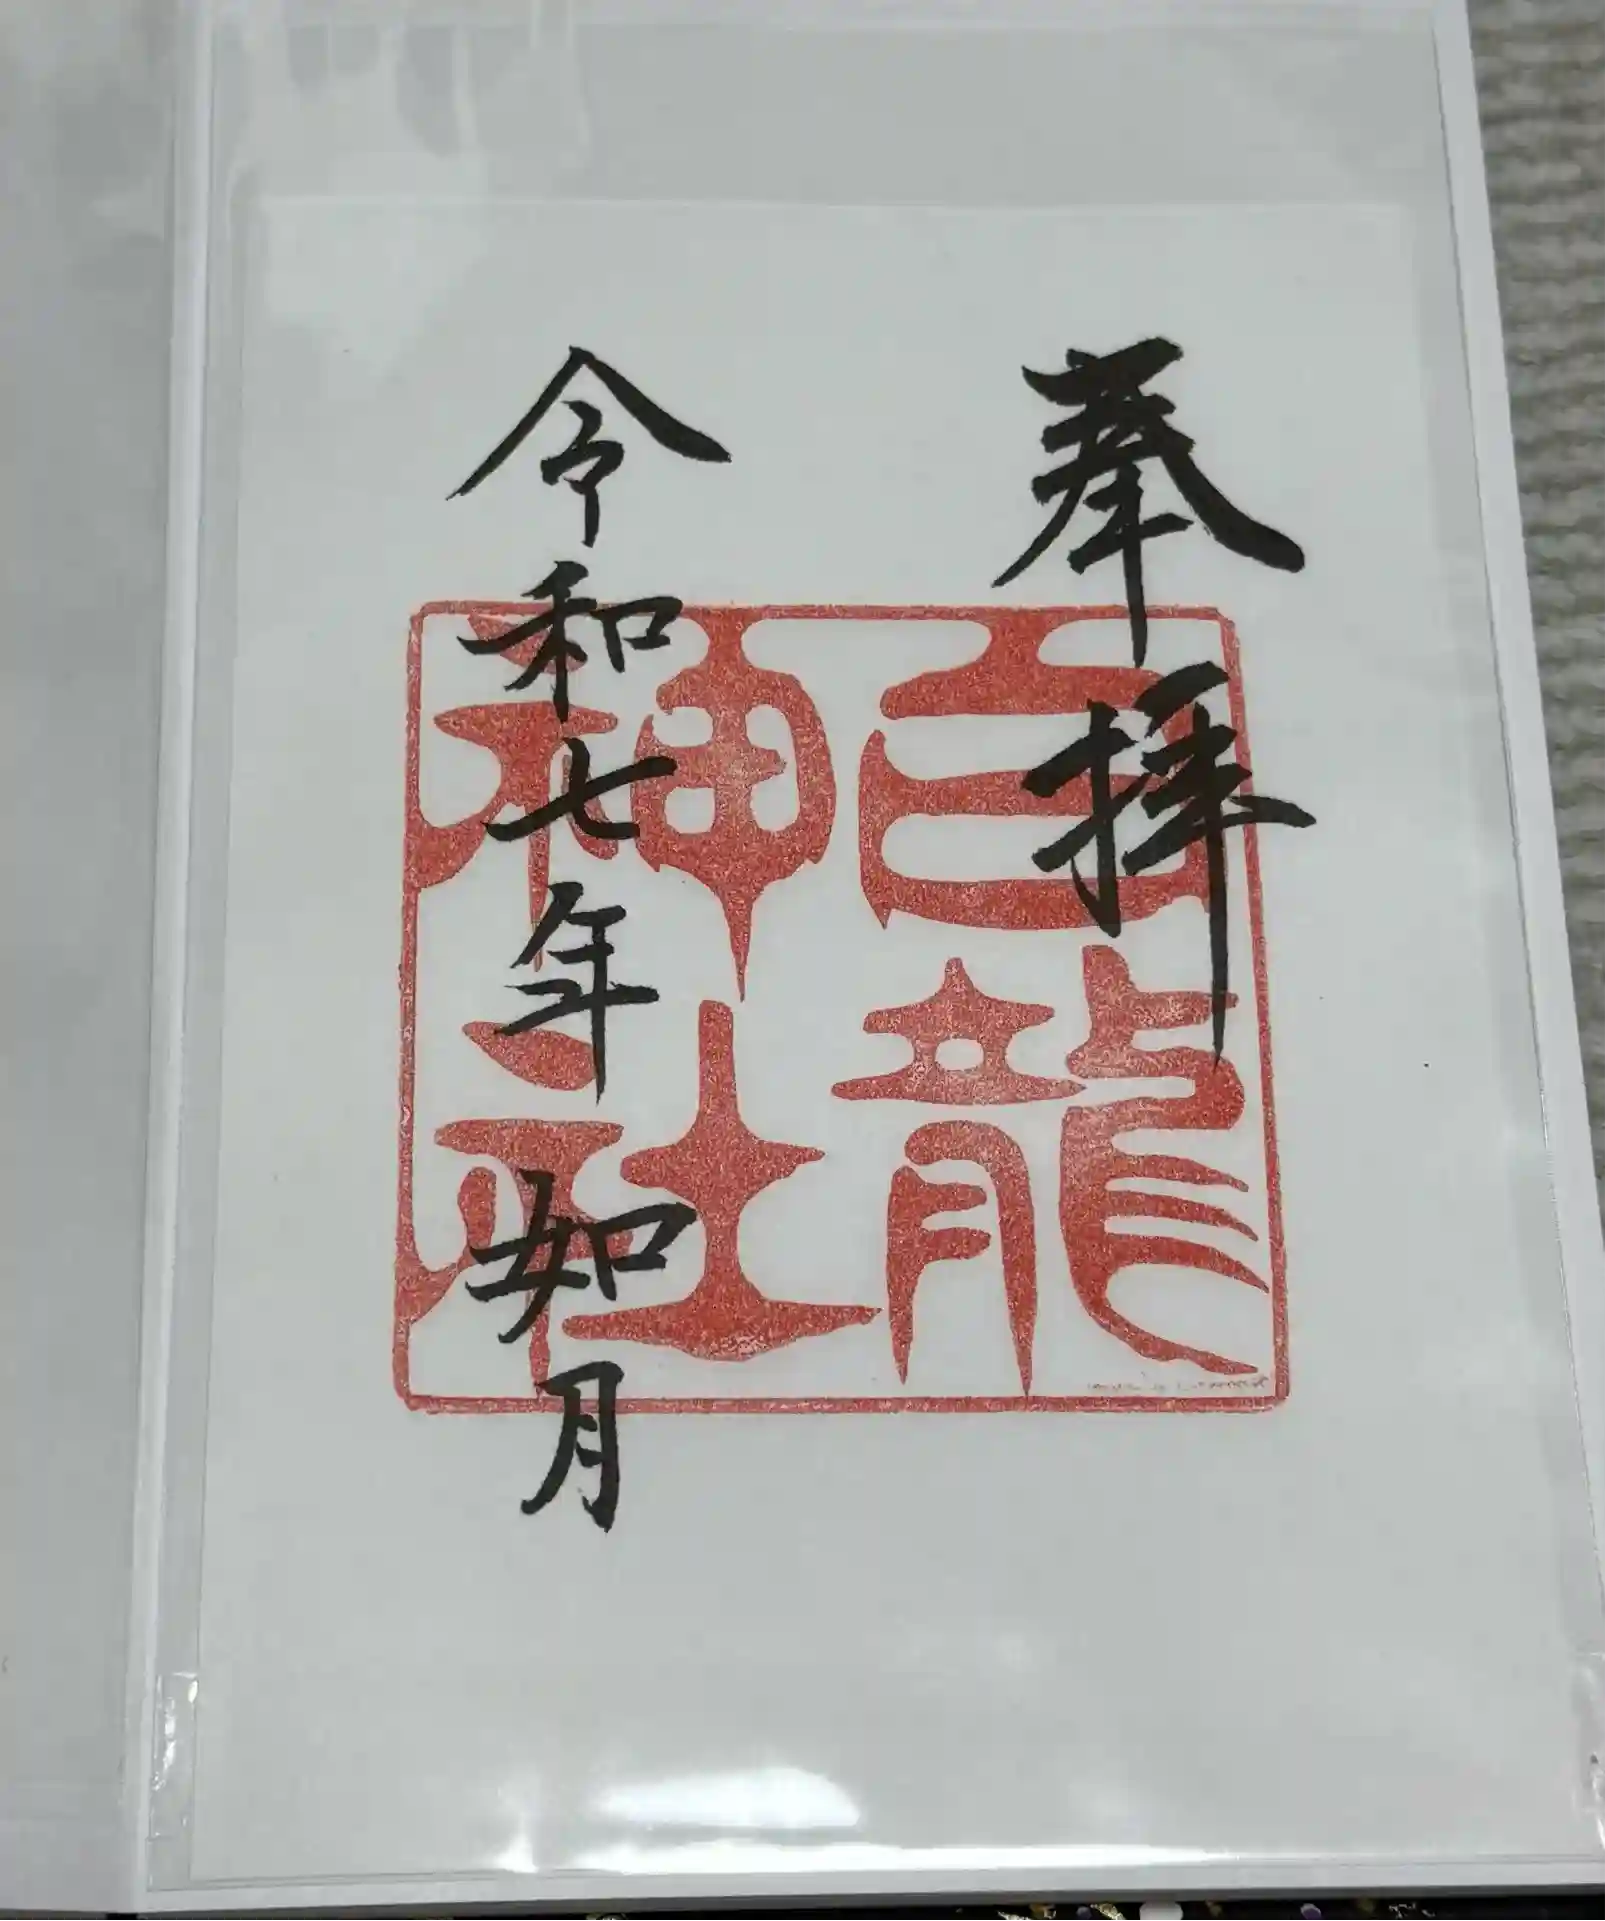 奉拝
白龍
神社
令和七年 如月